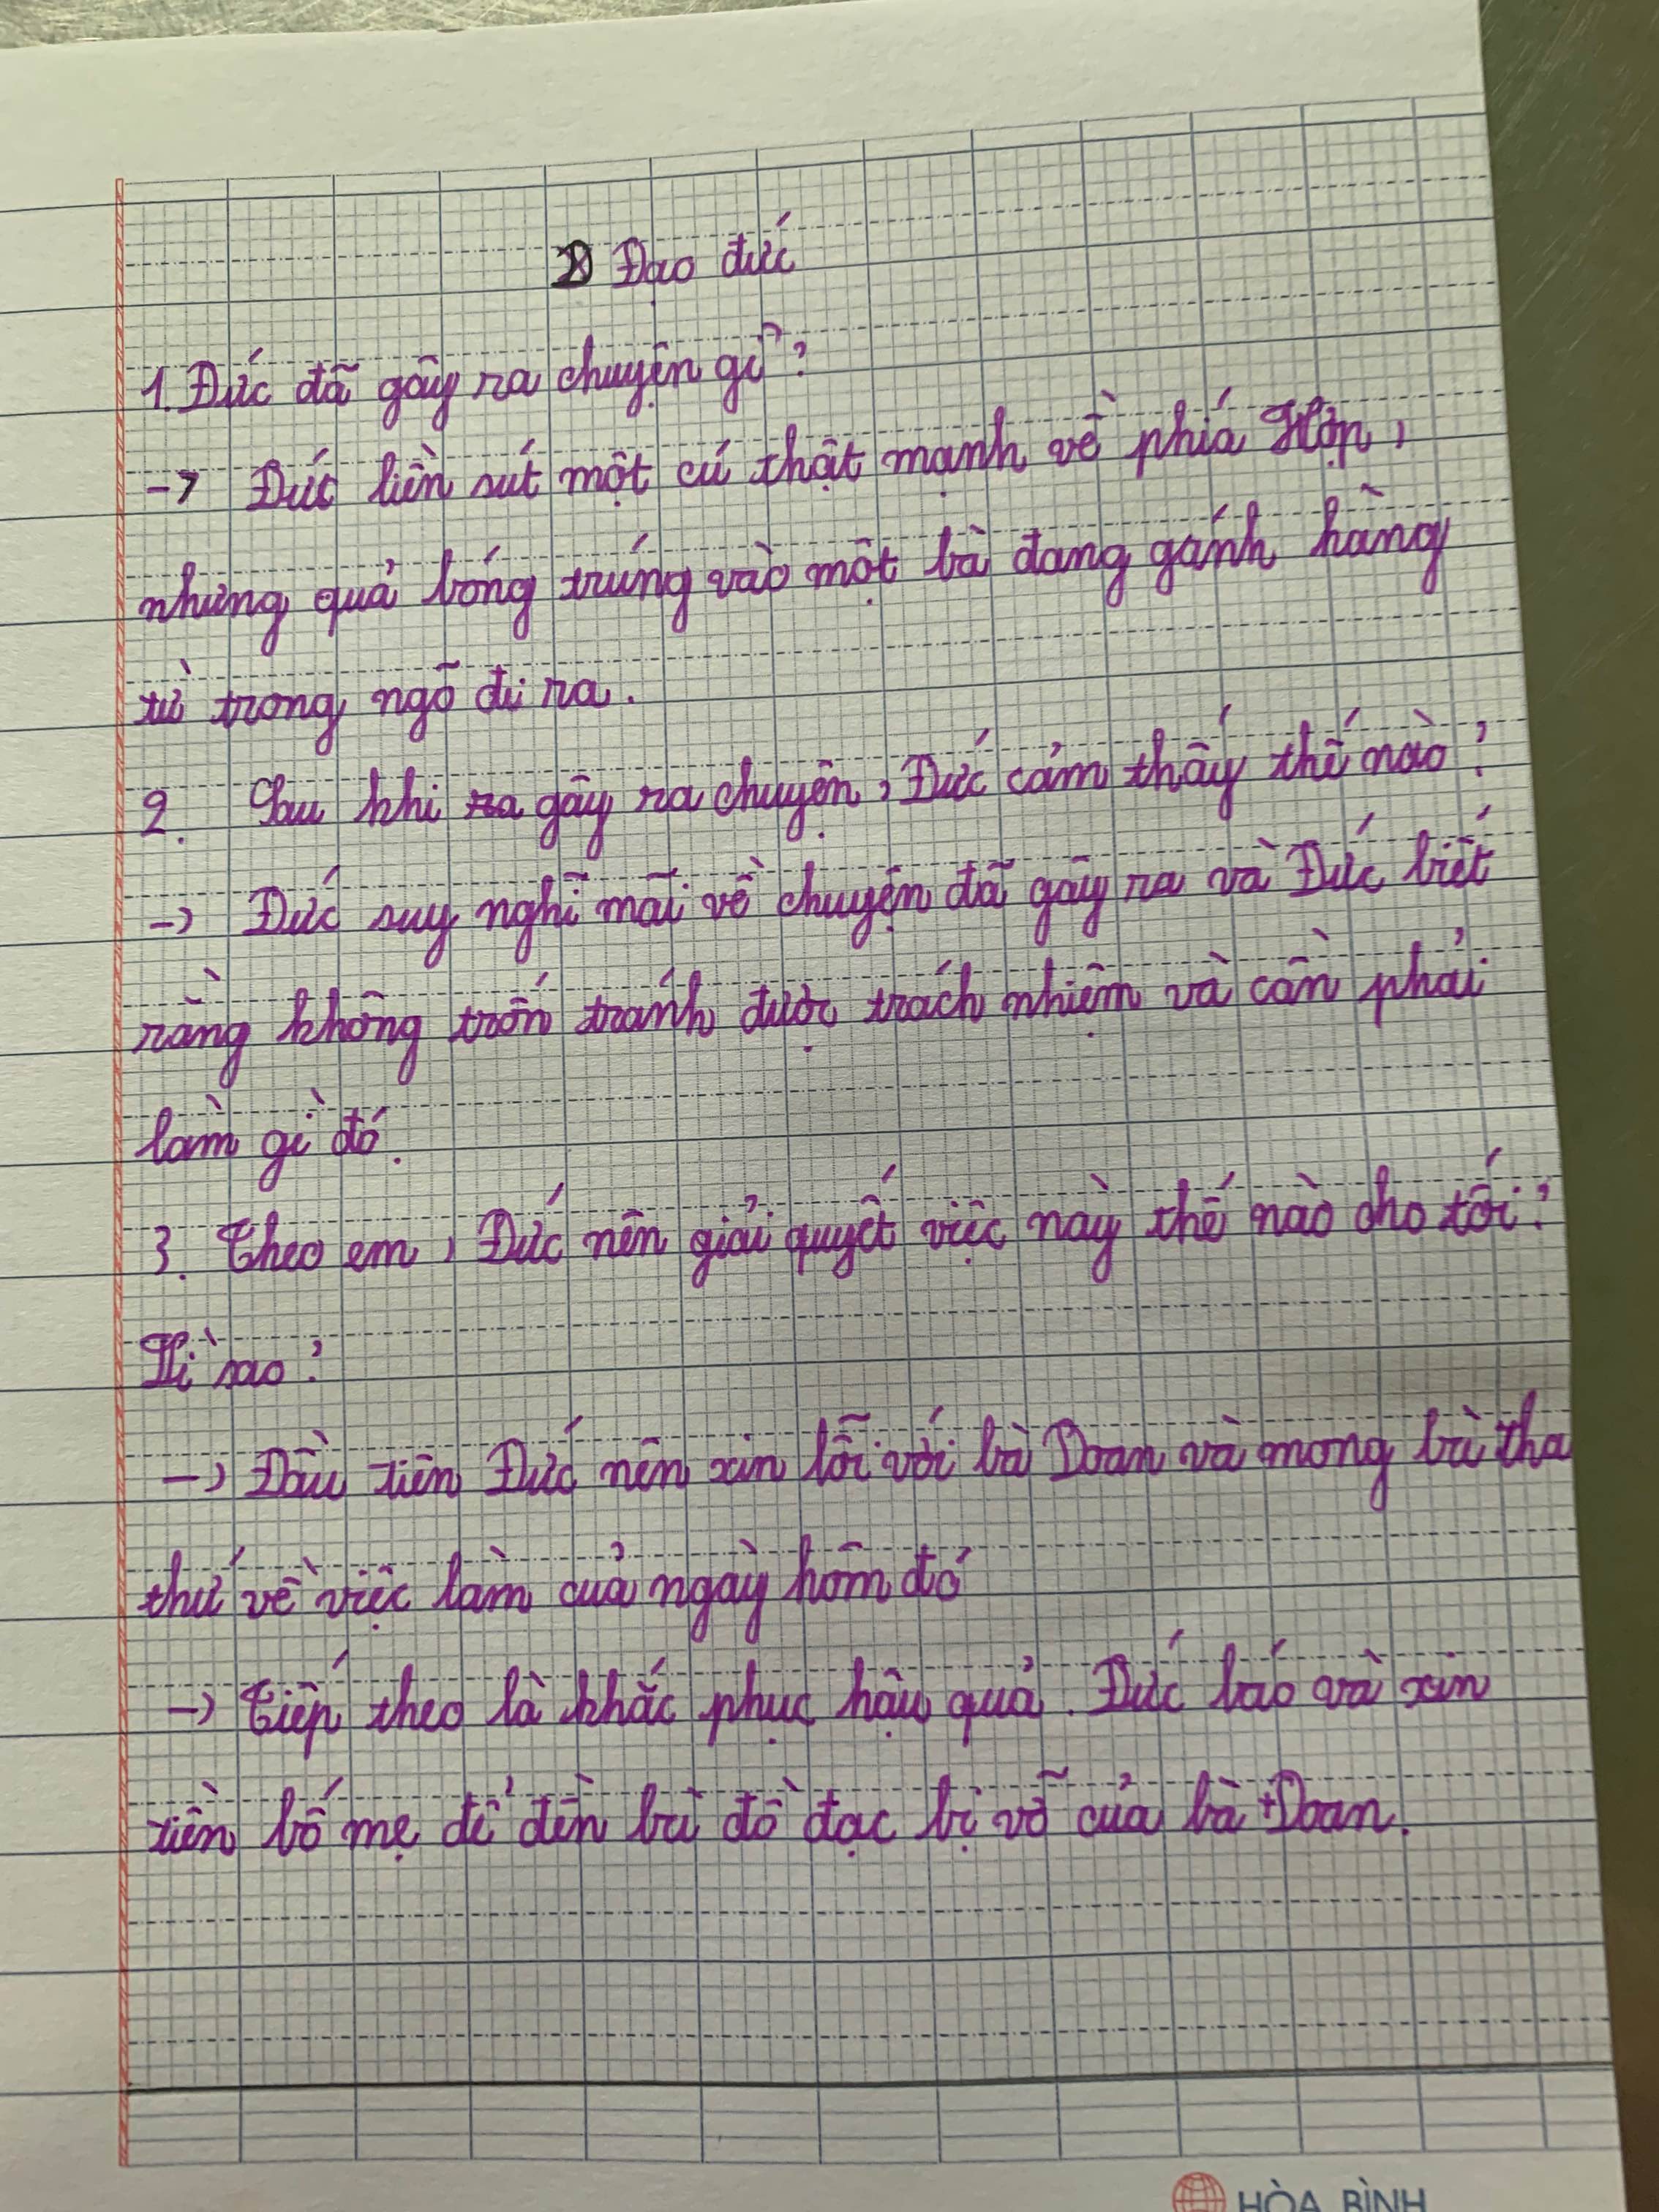 Đạo đức
1. Đức đã gây ra chuyện gì?
-> Đức liền sút một cú thật mạnh về phía Hợp,
nhưng quả bóng trúng vào một bà đang gánh hàng
từ trong ngõ đi ra.
2. Sau khi ra gây ra chuyện, Đức cảm thấy thế nào?
-> Đức suy nghĩ mãi về chuyện đã gây ra và Đức biết
rằng không trốn tránh được trách nhiệm và cần phải
làm gì đó.
3. Theo em, Đức nên giải quyết việc này thế nào cho tốt?
Vì sao?
-> Đầu tiên Đức nên xin lỗi với bà Doan và mong bà tha
thứ về việc làm của ngày hôm đó
-> Tiếp theo là khắc phục hậu quả. Đức báo và xin
tiền bố mẹ để đền bù đồ đạc bị vỡ của bà Doan.
HÒA BÌNH